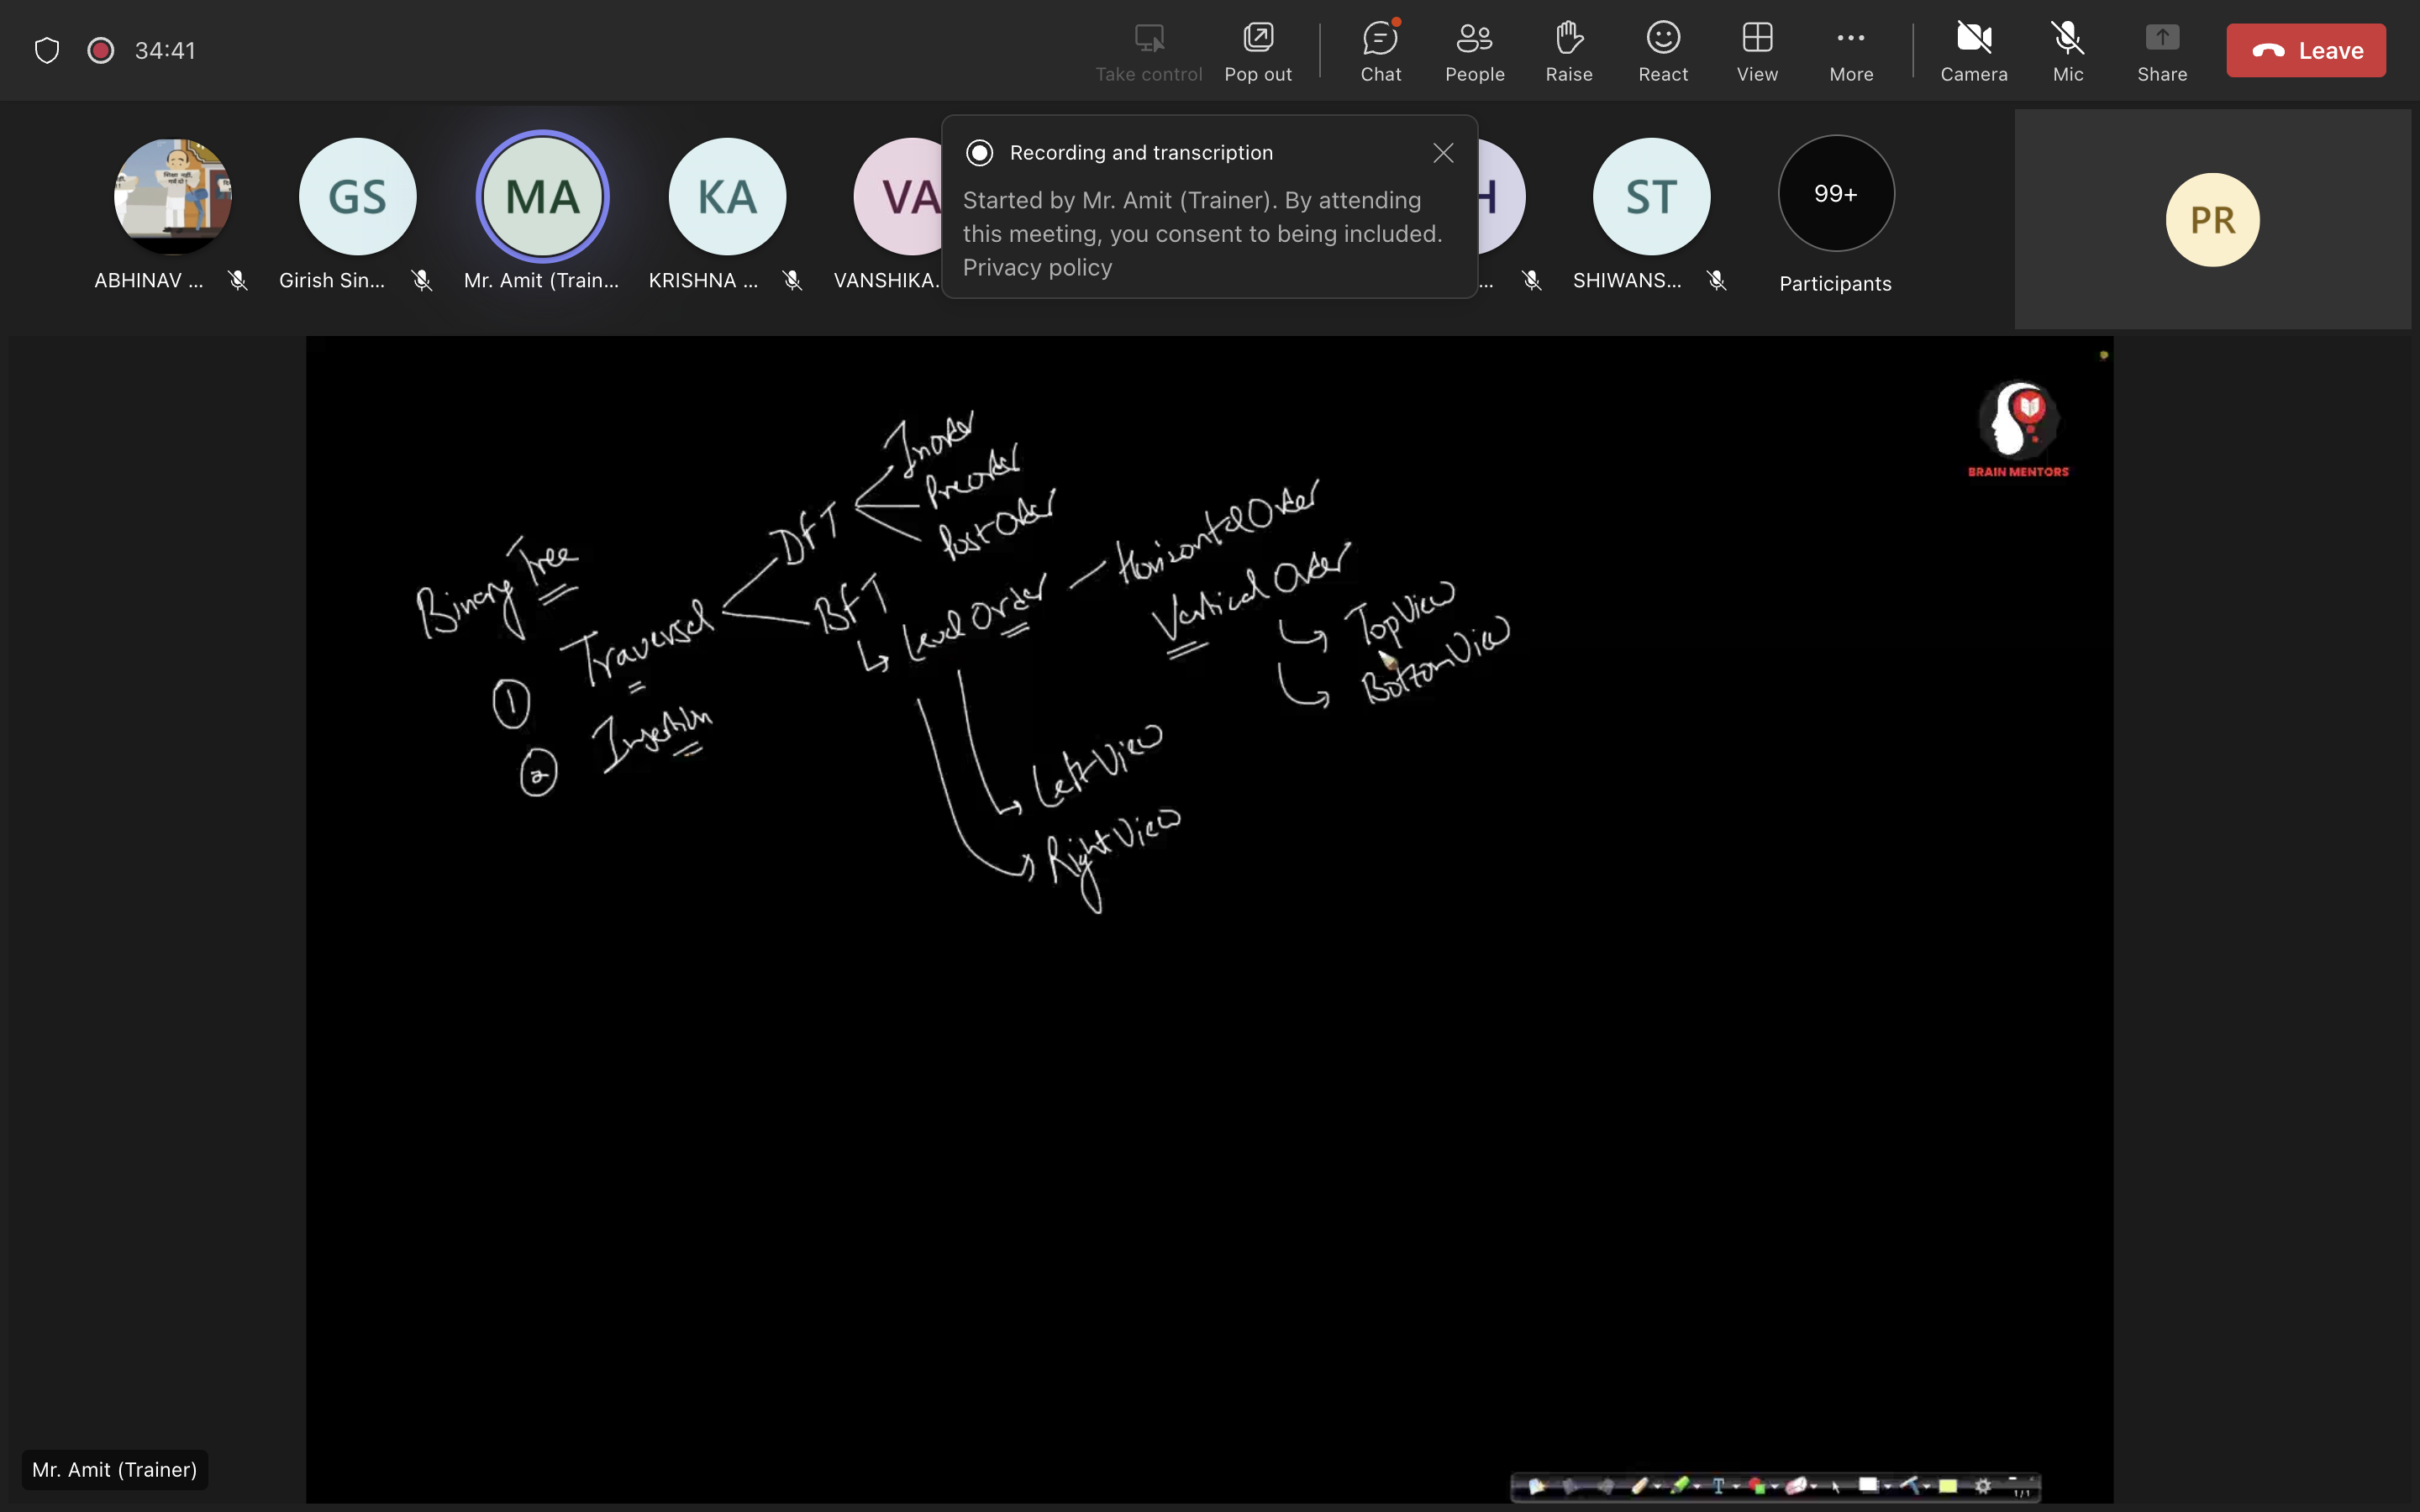 34:41
Take control
Pop out
Chat
People
Raise
React
View
More
Camera
Mic
Share
Leave
GS
MA
KA
VA
H
ST
99+
PR
ABHINAV ...
Girish Sin...
Mr. Amit (Train...
KRISHNA ...
VANSHIKA.
...
SHIWANS...
Participants
Recording and transcription
Started by Mr. Amit (Trainer). By attending
this meeting, you consent to being included.
Privacy policy
BRAIN MENTORS
Binary Tree
1 Traversal
2 Insertion
DFT
Inorder
Preorder
PostOrder
BFT
Level Order
Horizontal Order
Vertical Order
TopView
BottomView
LeftView
RightView
Mr. Amit (Trainer)
T
1/1